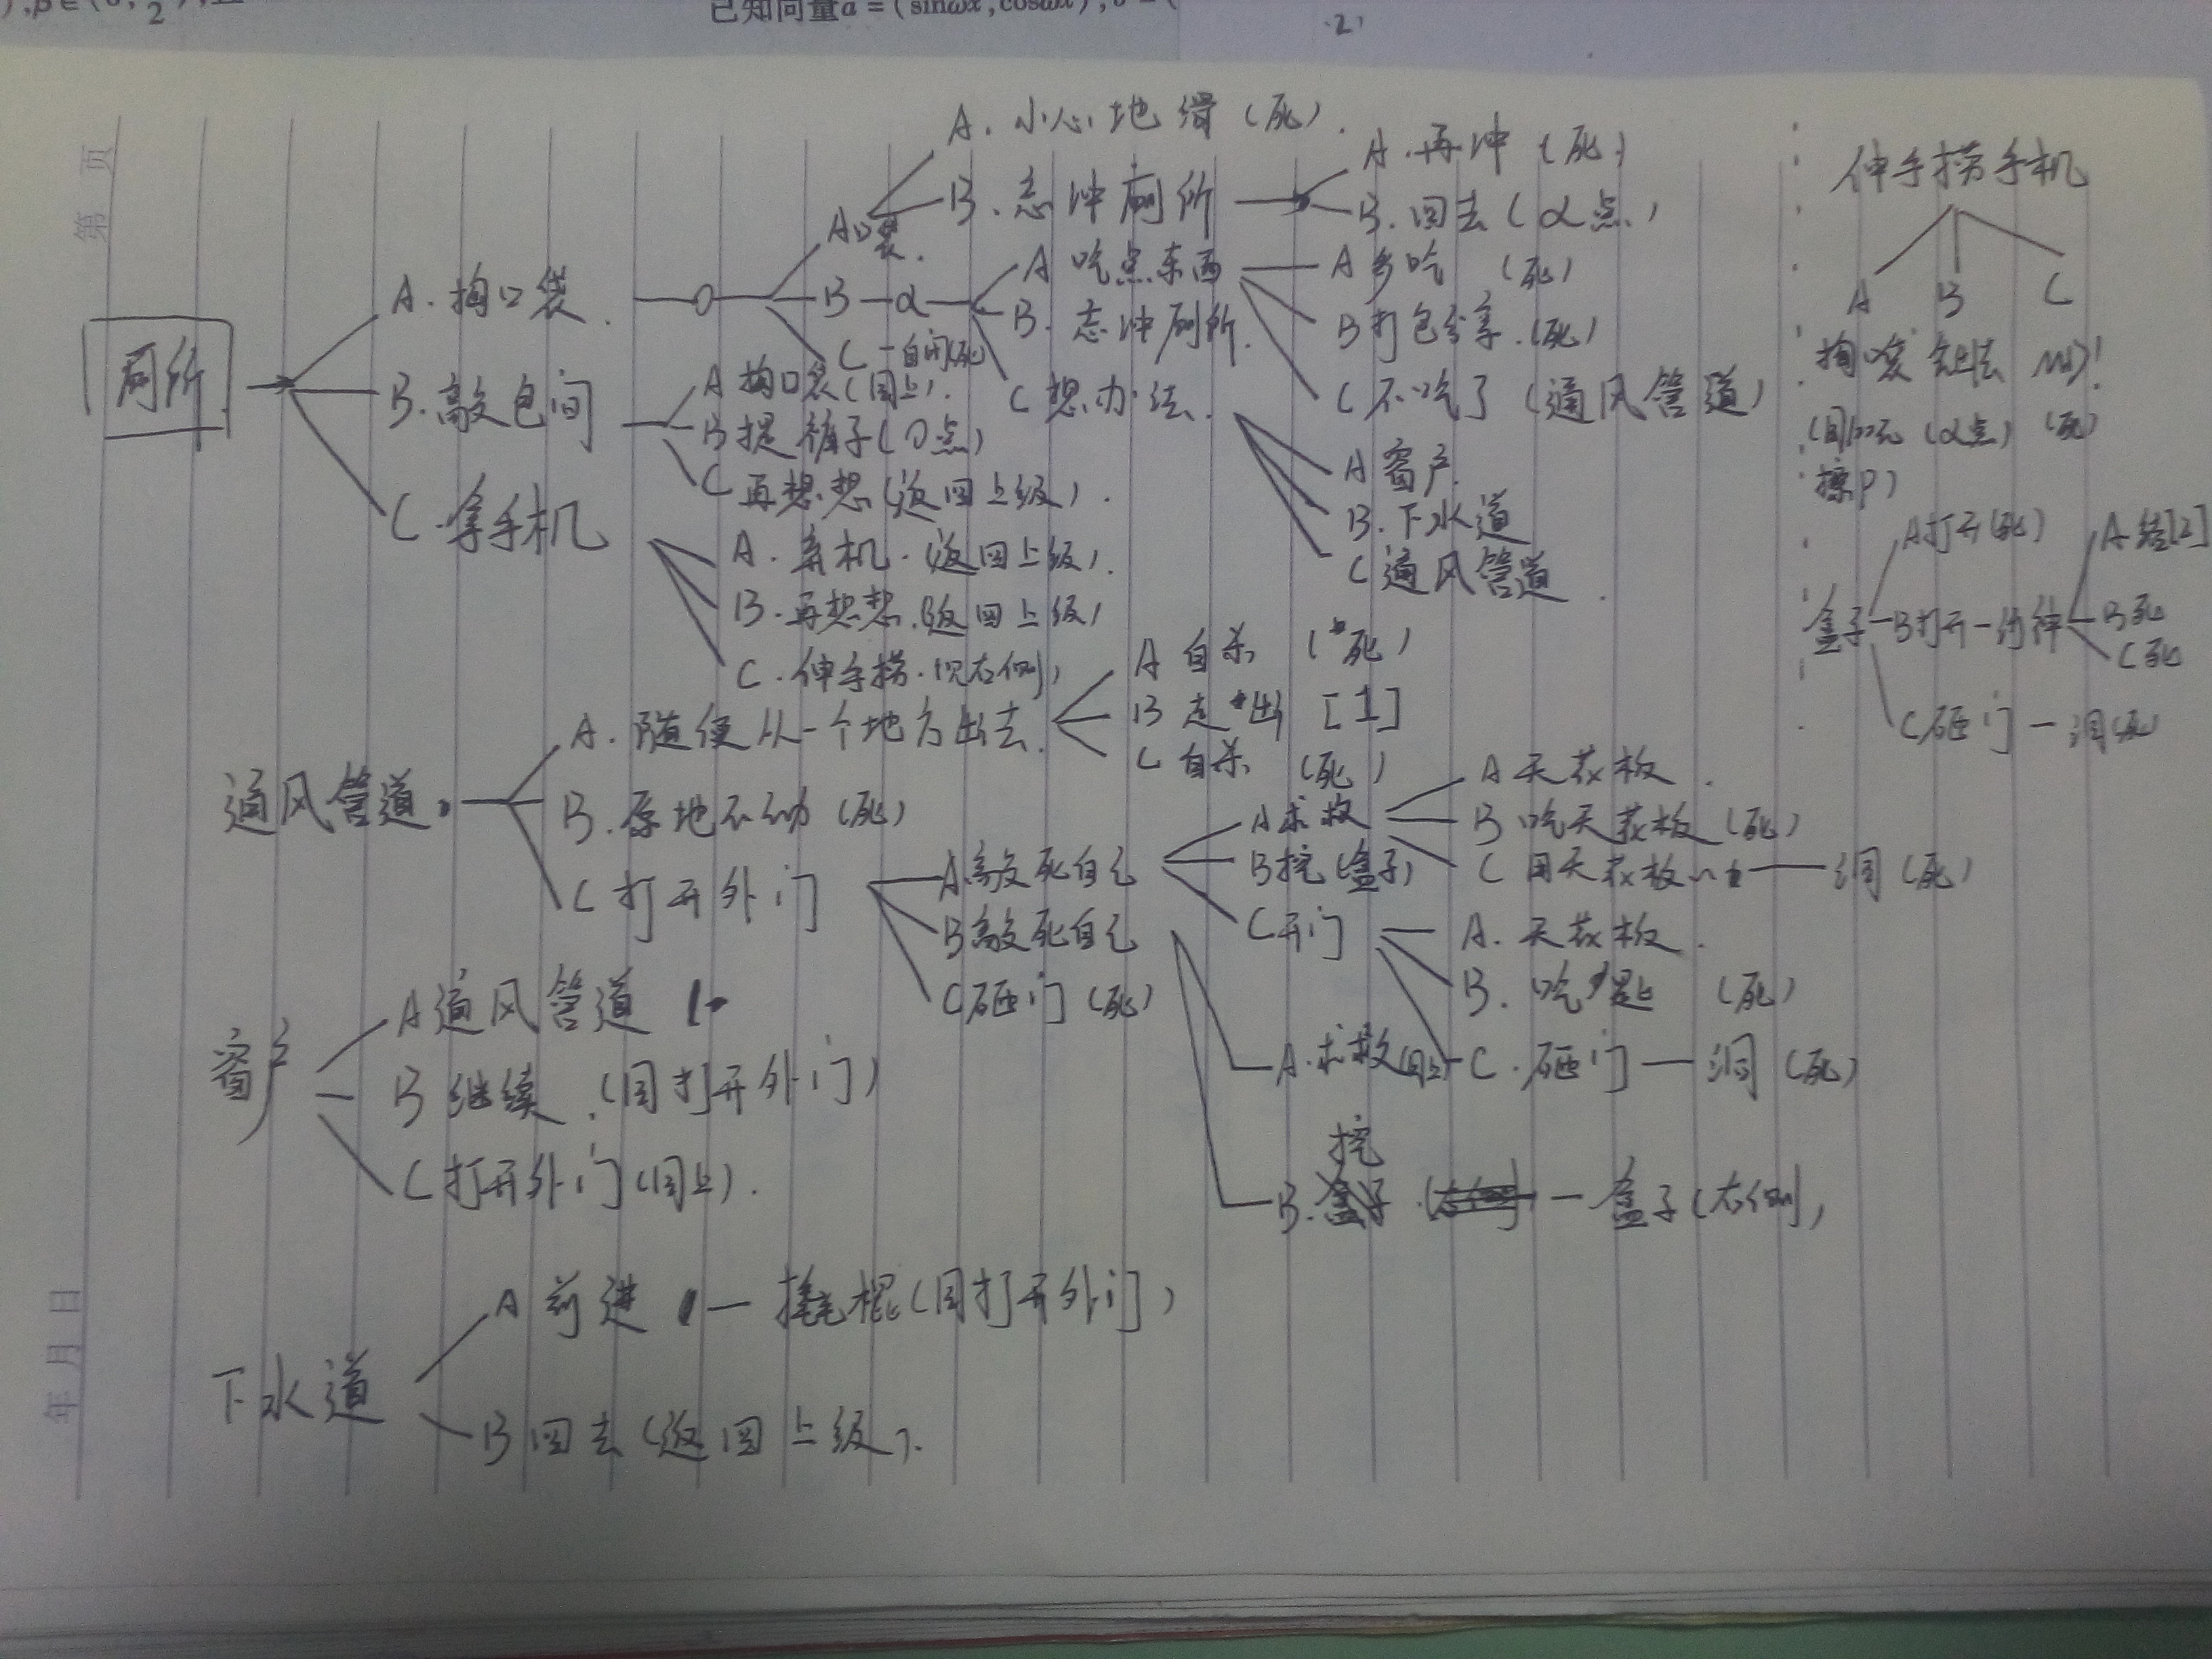 已知向量a=(sinωx,cosωx),
第 页
年 月 日
厕所
A.掏口袋.
B.敲包间
C.拿手机
O
B—α
A.小心地滑(死).
B.忘冲厕所
A.再冲(死)
B.回去(α点)
A 吃点东西
B.忘冲厕所.
C 想办法.
A多吃 (死)
B打包分享.(死)
C不吃了(通风管道)
A 窗户.
B.下水道
C通风管道.
A掏口袋(同上).
B提裤子(O点)
C再想想(返回上级).
A.弃机.(返回上级).
B.再想想.(返回上级)
C.伸手捞.(见右侧)
通风管道
A.随便从一个地方出去.
B.原地不动(死)
C打开外门
A 自杀 (死)
B 走出 [1]
C 自杀 (死)
A敲死自己
B敲死自己
C砸门(死)
A求救
B挖(盒子)
C开门
A天花板.
B吃天花板(死)
C用天花板 — 洞(死)
A.天花板.
B.吃 (死)
C.砸门—洞(死)
A.求救(同上)
B.挖 — 盒子(右侧)
窗户
A通风管道
B继续.(同打开外门)
C打开外门(同上).
下水道
A前进 — 撬棍(同打开外门)
B回去(返回上级).
伸手捞手机
A B C
(α点) (死)
盒子
A打开(死)
B打开
C砸门—洞(死)
A.结[2]
B死
C死